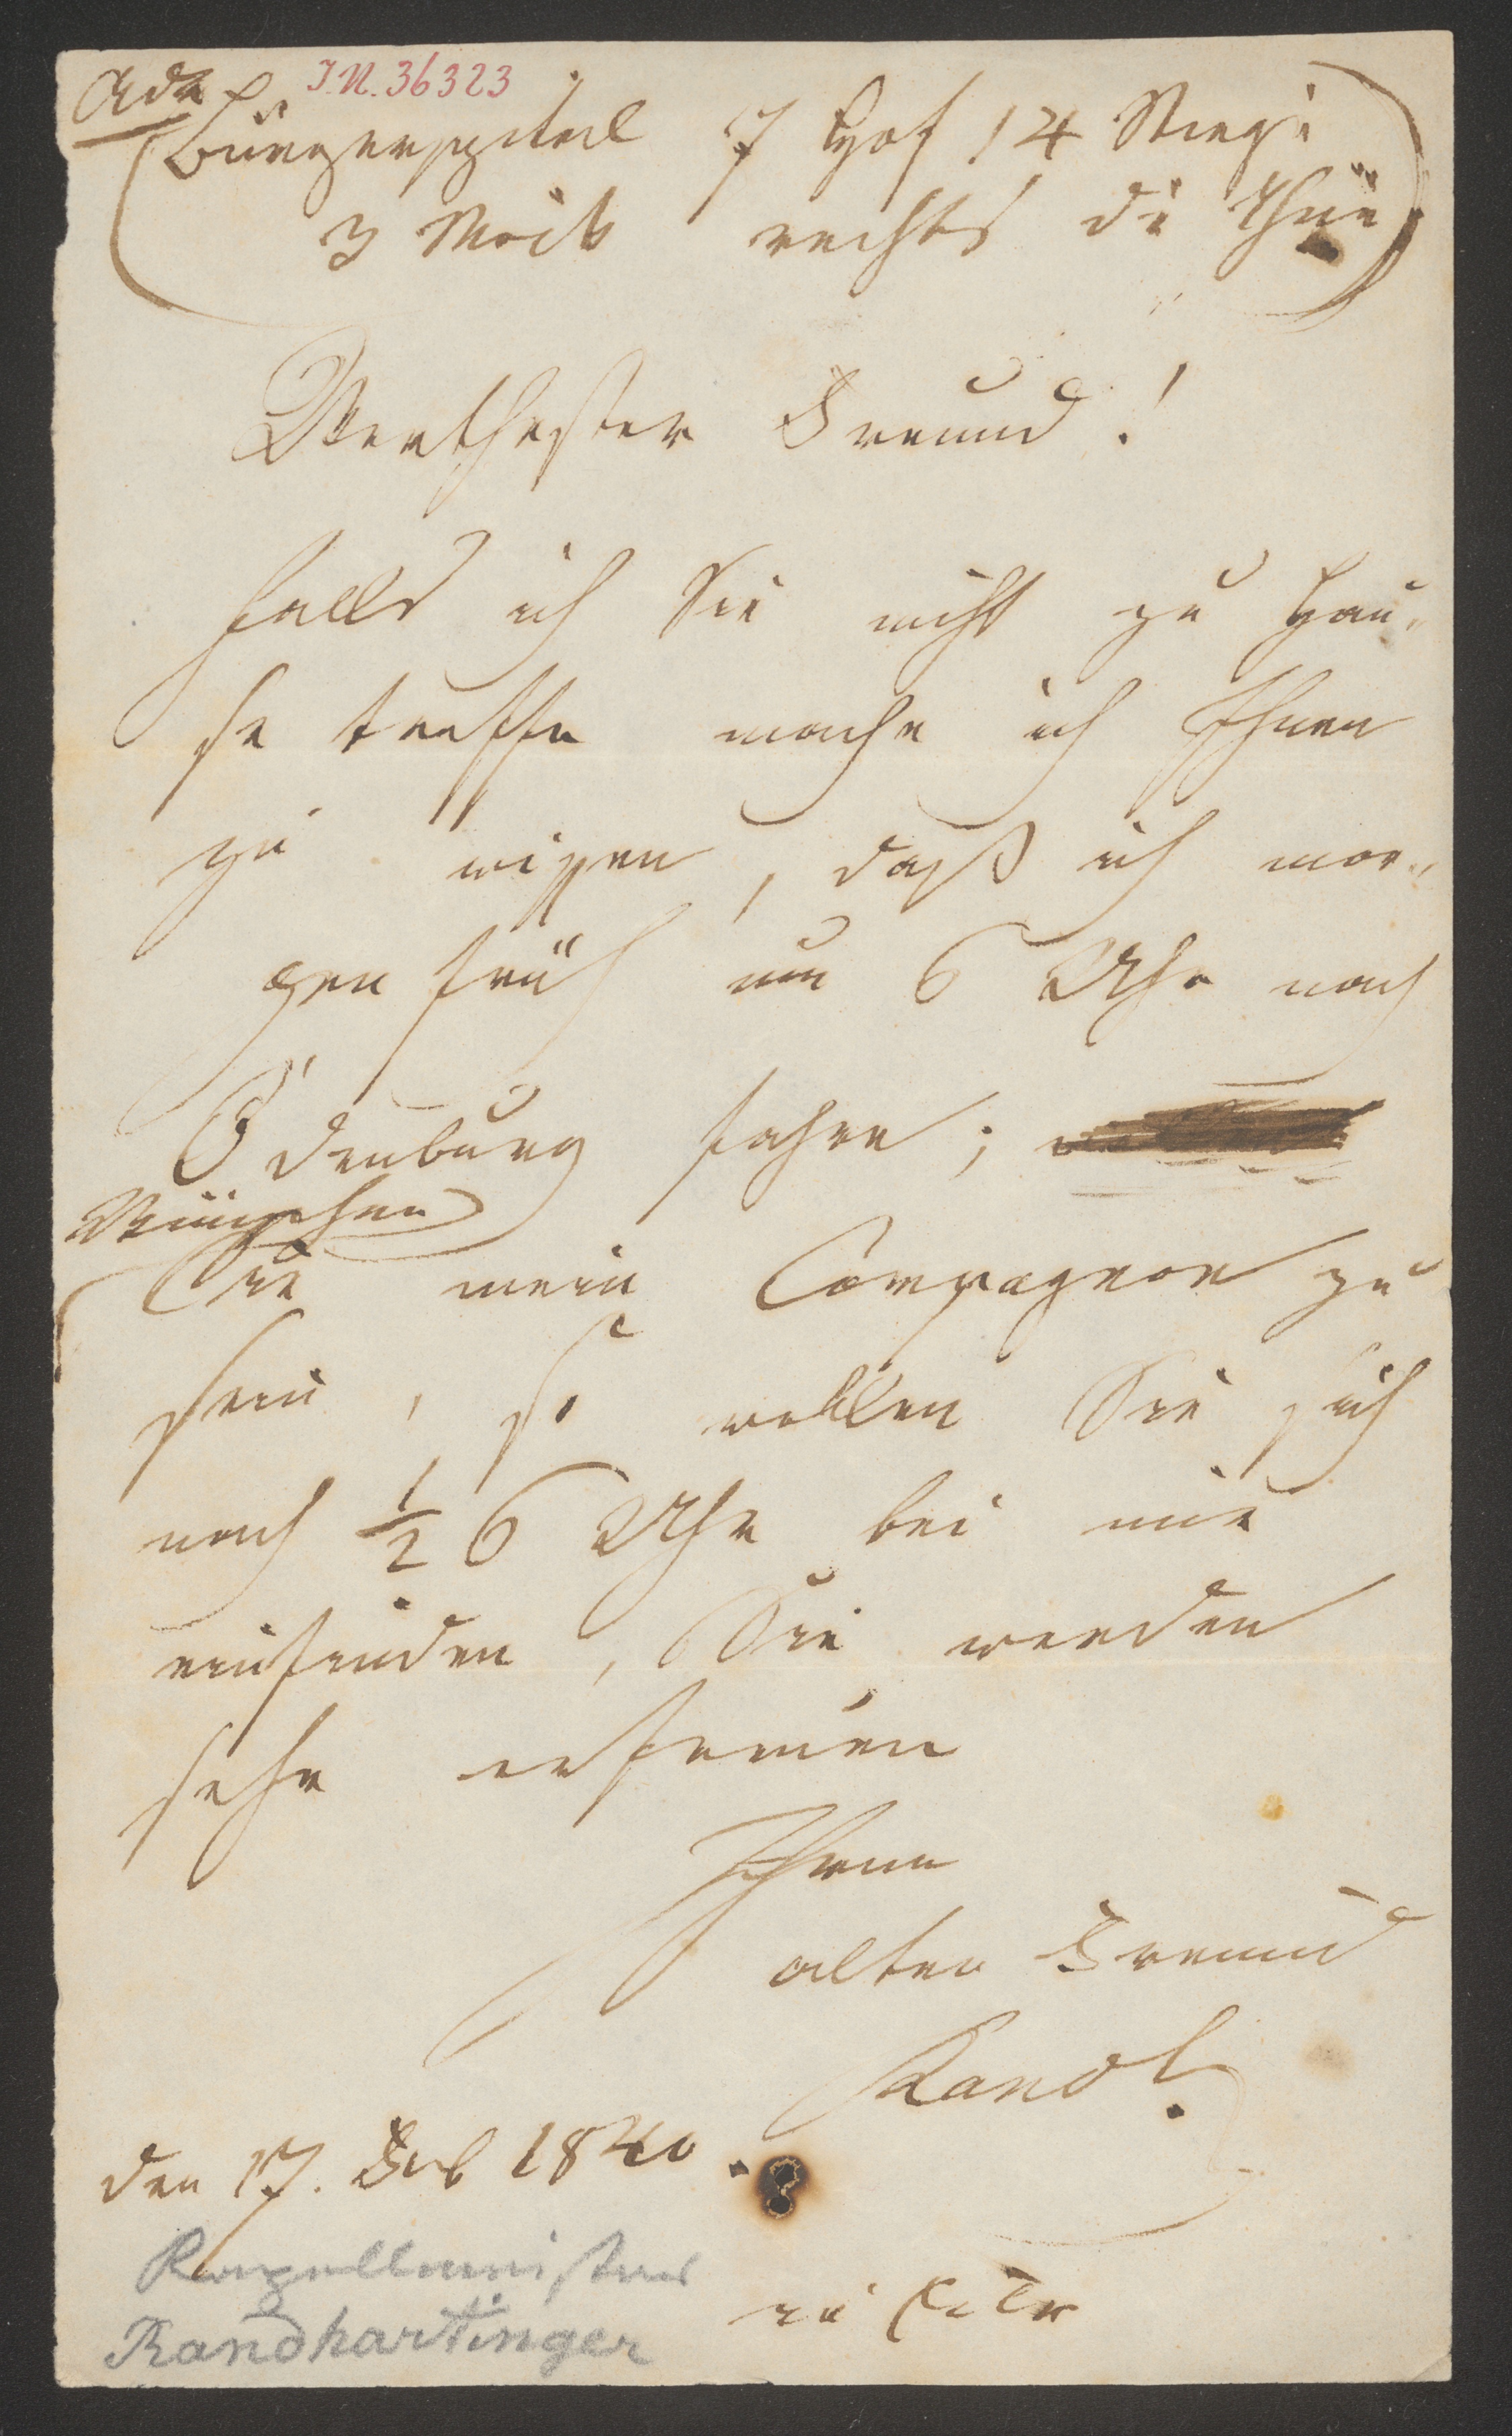 Adr I.N. 36323
(Bürgerspital 7 Hof 14 Stiege
3 Stock rechts die Thür)
Werthester Freund!
Falls ich Sie nicht zu Hau-
se treffe mache ich Ihnen
zu wissen, daß ich mor-
gen früh um 6 Uhr nach
Ödenburg fahre;
Wünschen
Sie mein Compagnon zu
sein, so wollen Sie sich
nach ½ 6 Uhr bei mir
einfinden, Sie werden
sehr erfreuen
Ihren
alten Freund
Rand
den 17. Feb 1840.
Kapellmeister
Randhartinger